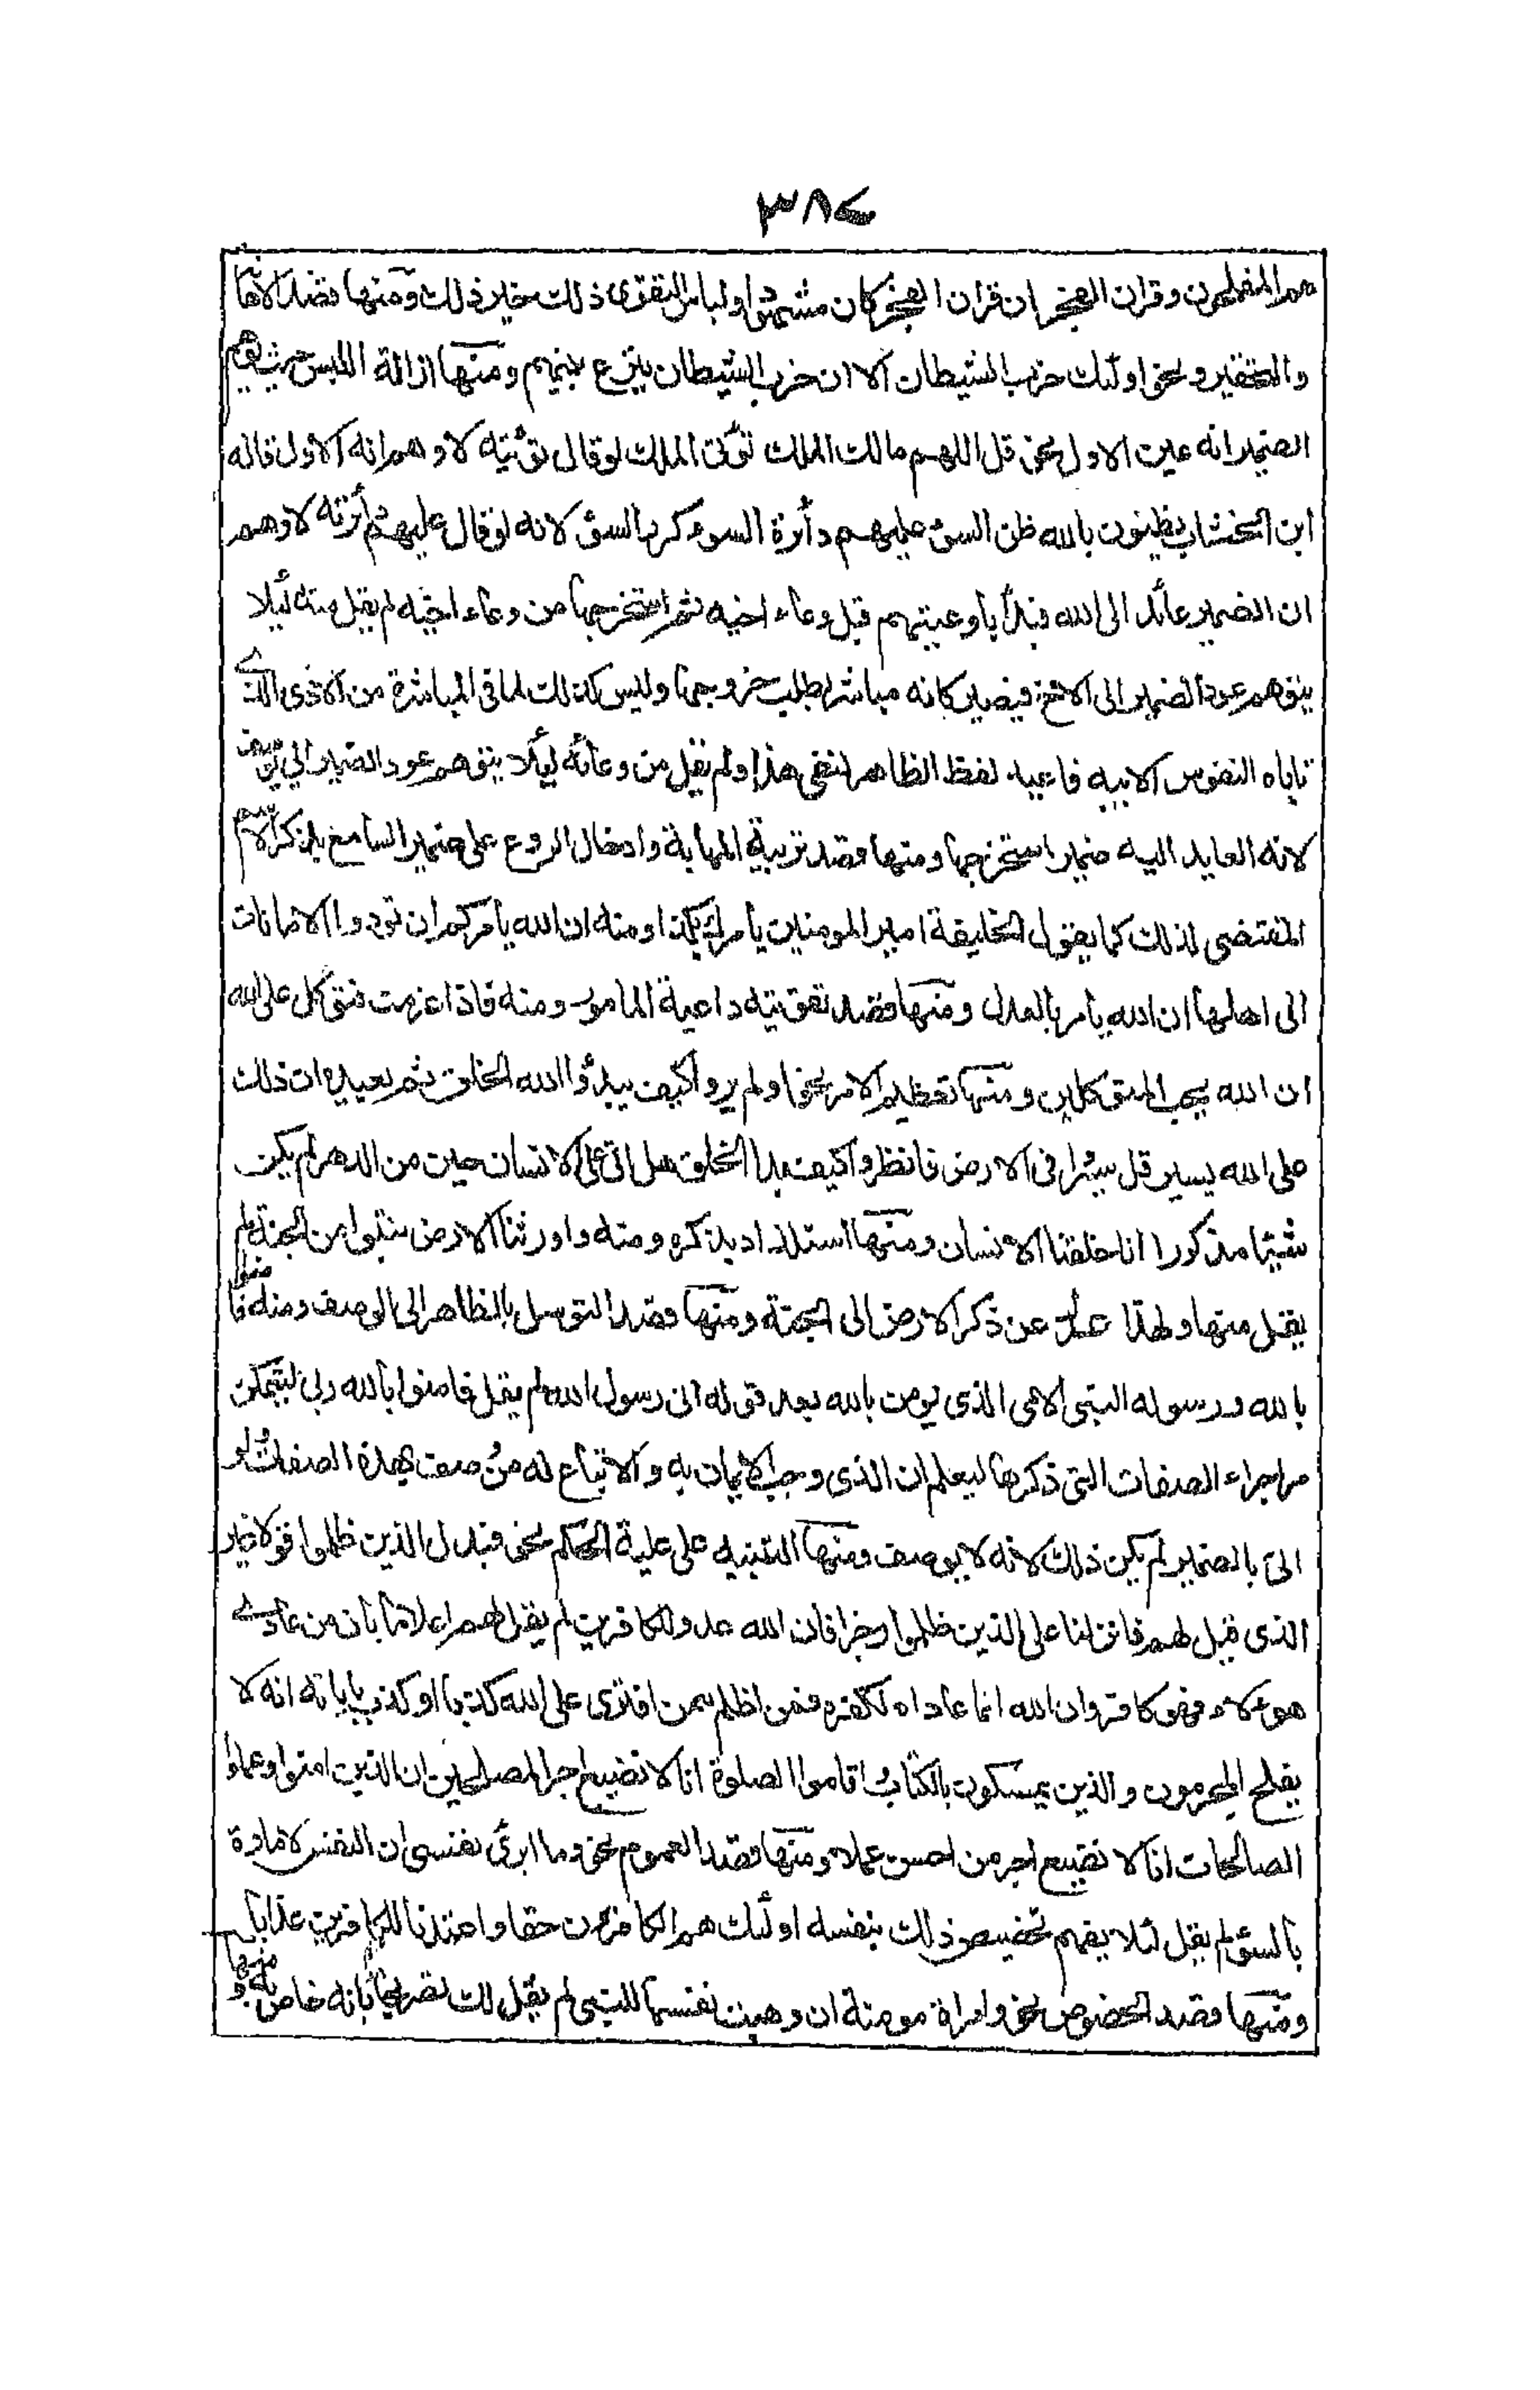 ٣٨٤
هم المفلحون وقران الفجر ان قران الفجر كان مشهودا ولباس التقوى ذلك خير ذلك ومنها قصد الاهانة
والتحقير نحو اولئك حزب الشيطان الا ان حزب الشيطان ينزغ بينهم ومنها ازالة اللبس حيث يوهم
الضمير انه عين الاول نحو قل اللهم مالك الملك تؤتى الملك لو قال تؤتيه لاوهم انه الاول قاله
ابن الخشاب يظنون بالله ظن السوء عليهم دائرة السوء كرر السوء لانه لو قال عليهم دائرته لاوهم
ان الضمير عائد الى الله فبدأ باوعيتهم قبل وعاء اخيه ثم استخرجها من وعاء اخيه لم يقل منه ليلا
يتوهم عود الضمير الى الاخ فيصير كانه مباشر لطلب خروجها وليس كذلك لما فى المباشرة من الاذى الذے
تاباه النفوس الابيه فاعيد لفظ الظاهر لنفى هذا ولم يقل من وعائه ليلا يتوهم عود الضمير الى يوسف
لانه العايد اليه ضمير استخرجها ومنها قصد تربية المهابة وادخال الروع على ضمير السامع بذكر الاسم
المقتضى لذلك كما يقول الخليفة امير المومنين يأمرك بكذا ومنه ان الله يأمركم ان تودوا الامانات
الى اهلها ان الله يأمر بالعدل ومنها قصد تقويته داعية المامور ومنه فاذا عزمت فتوكل على الله
ان الله يحب المتوكلين ومنها تعظيم الامر نحو اولم يروا كيف يبدؤا الله الخلق ثم يعيده ان ذلك
على الله يسير قل سيروا فى الارض فانظروا كيف بدا الخلق هل اتى على الانسان حين من الدهر لم يكن
شيئا مذكورا انا خلقنا الانسان ومنها استلذاد بذكره ومنه واورثنا الارض نتبوا من الجنة لم
يقل منها ولهذا عدل عن ذكر الارض الى الجنة ومنها قصد التوسل بالظاهر الى الوصف ومنه فامنوا
بالله ورسوله النبى الامى الذى يومن بالله بعد قوله انى رسول الله لم يقل فامنوا بالله وبى ليتمكن
من اجراء الصفات التى ذكرها ليعلم ان الذى وجب الايمان به والاتباع له من وصف بهذه الصفات ولو
اتى بالضمير لم يكن ذلك لانه لا يوصف ومنها التنبيه على علية الحكم نحو فبدل الذين ظلموا قولا غير
الذى قيل لهم فانزلنا على الذين ظلموا رجزا فان الله عدو للكافرين لم يقل لهم اعلاما بان من عادے
هوءلاء فهو كافر وان الله انما عاداه لكفره فمن اظلم ممن افترى على الله كذبا او كذب باياته انه لا
يفلح المجرمون والذين يمسكون بالكتاب واقاموا الصلوة انا لا نضيع اجر المصلحين ان الذين امنوا وعملوا
الصالحات انا لا نضيع اجر من احسن عملا ومنها قصد العموم نحو وما ابرئ نفسى ان النفس لامارة
بالسوء لم يقل لئلا يفهم تخصيص ذلك بنفسه اولئك هم الكافرون حقا واعتدنا للكافرين عذابا
ومنها قصد الخصوص نحو وامراة مومنة ان وهبت نفسها للنبى لم يقل لك تصريحا بانه خاص به ومنها